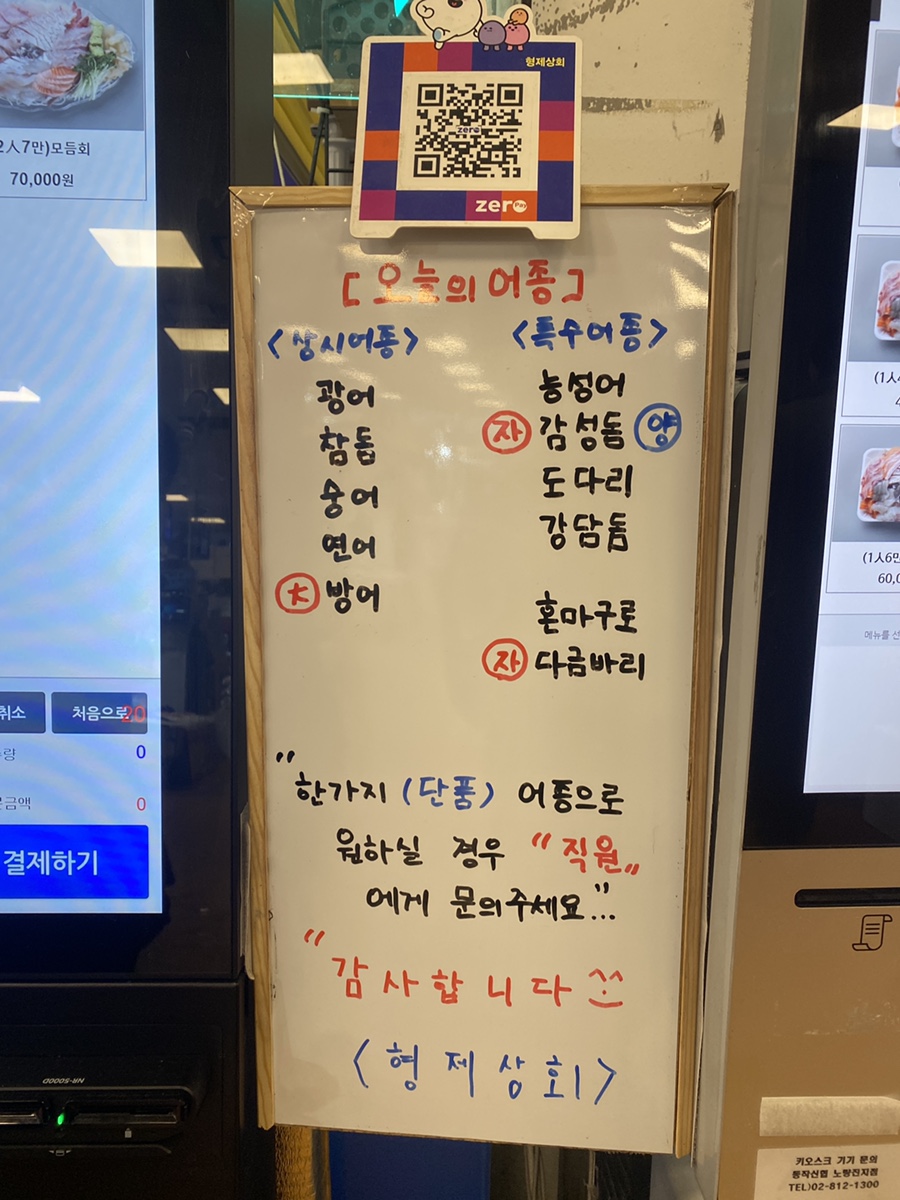 형제상회
zero
zero Pay
2人7만)모듬회
70,000원
[오늘의 어종]
<상시어종>
광어
참돔
숭어
연어
大 방어
<특수어종>
농성어
자 감성돔 양
도다리
강담돔
혼마구로
자 다금바리
"한가지 (단품) 어종으로
원하실 경우 "직원"
에게 문의주세요..."
"감사합니다^^
<형제상회>
취소
처음으로
20
0
0
결제하기
NR-5000D
(1人6만
60,0
메뉴를 선
키오스크 기기 문의
동작신협 노량진지점
TEL)02-812-1300